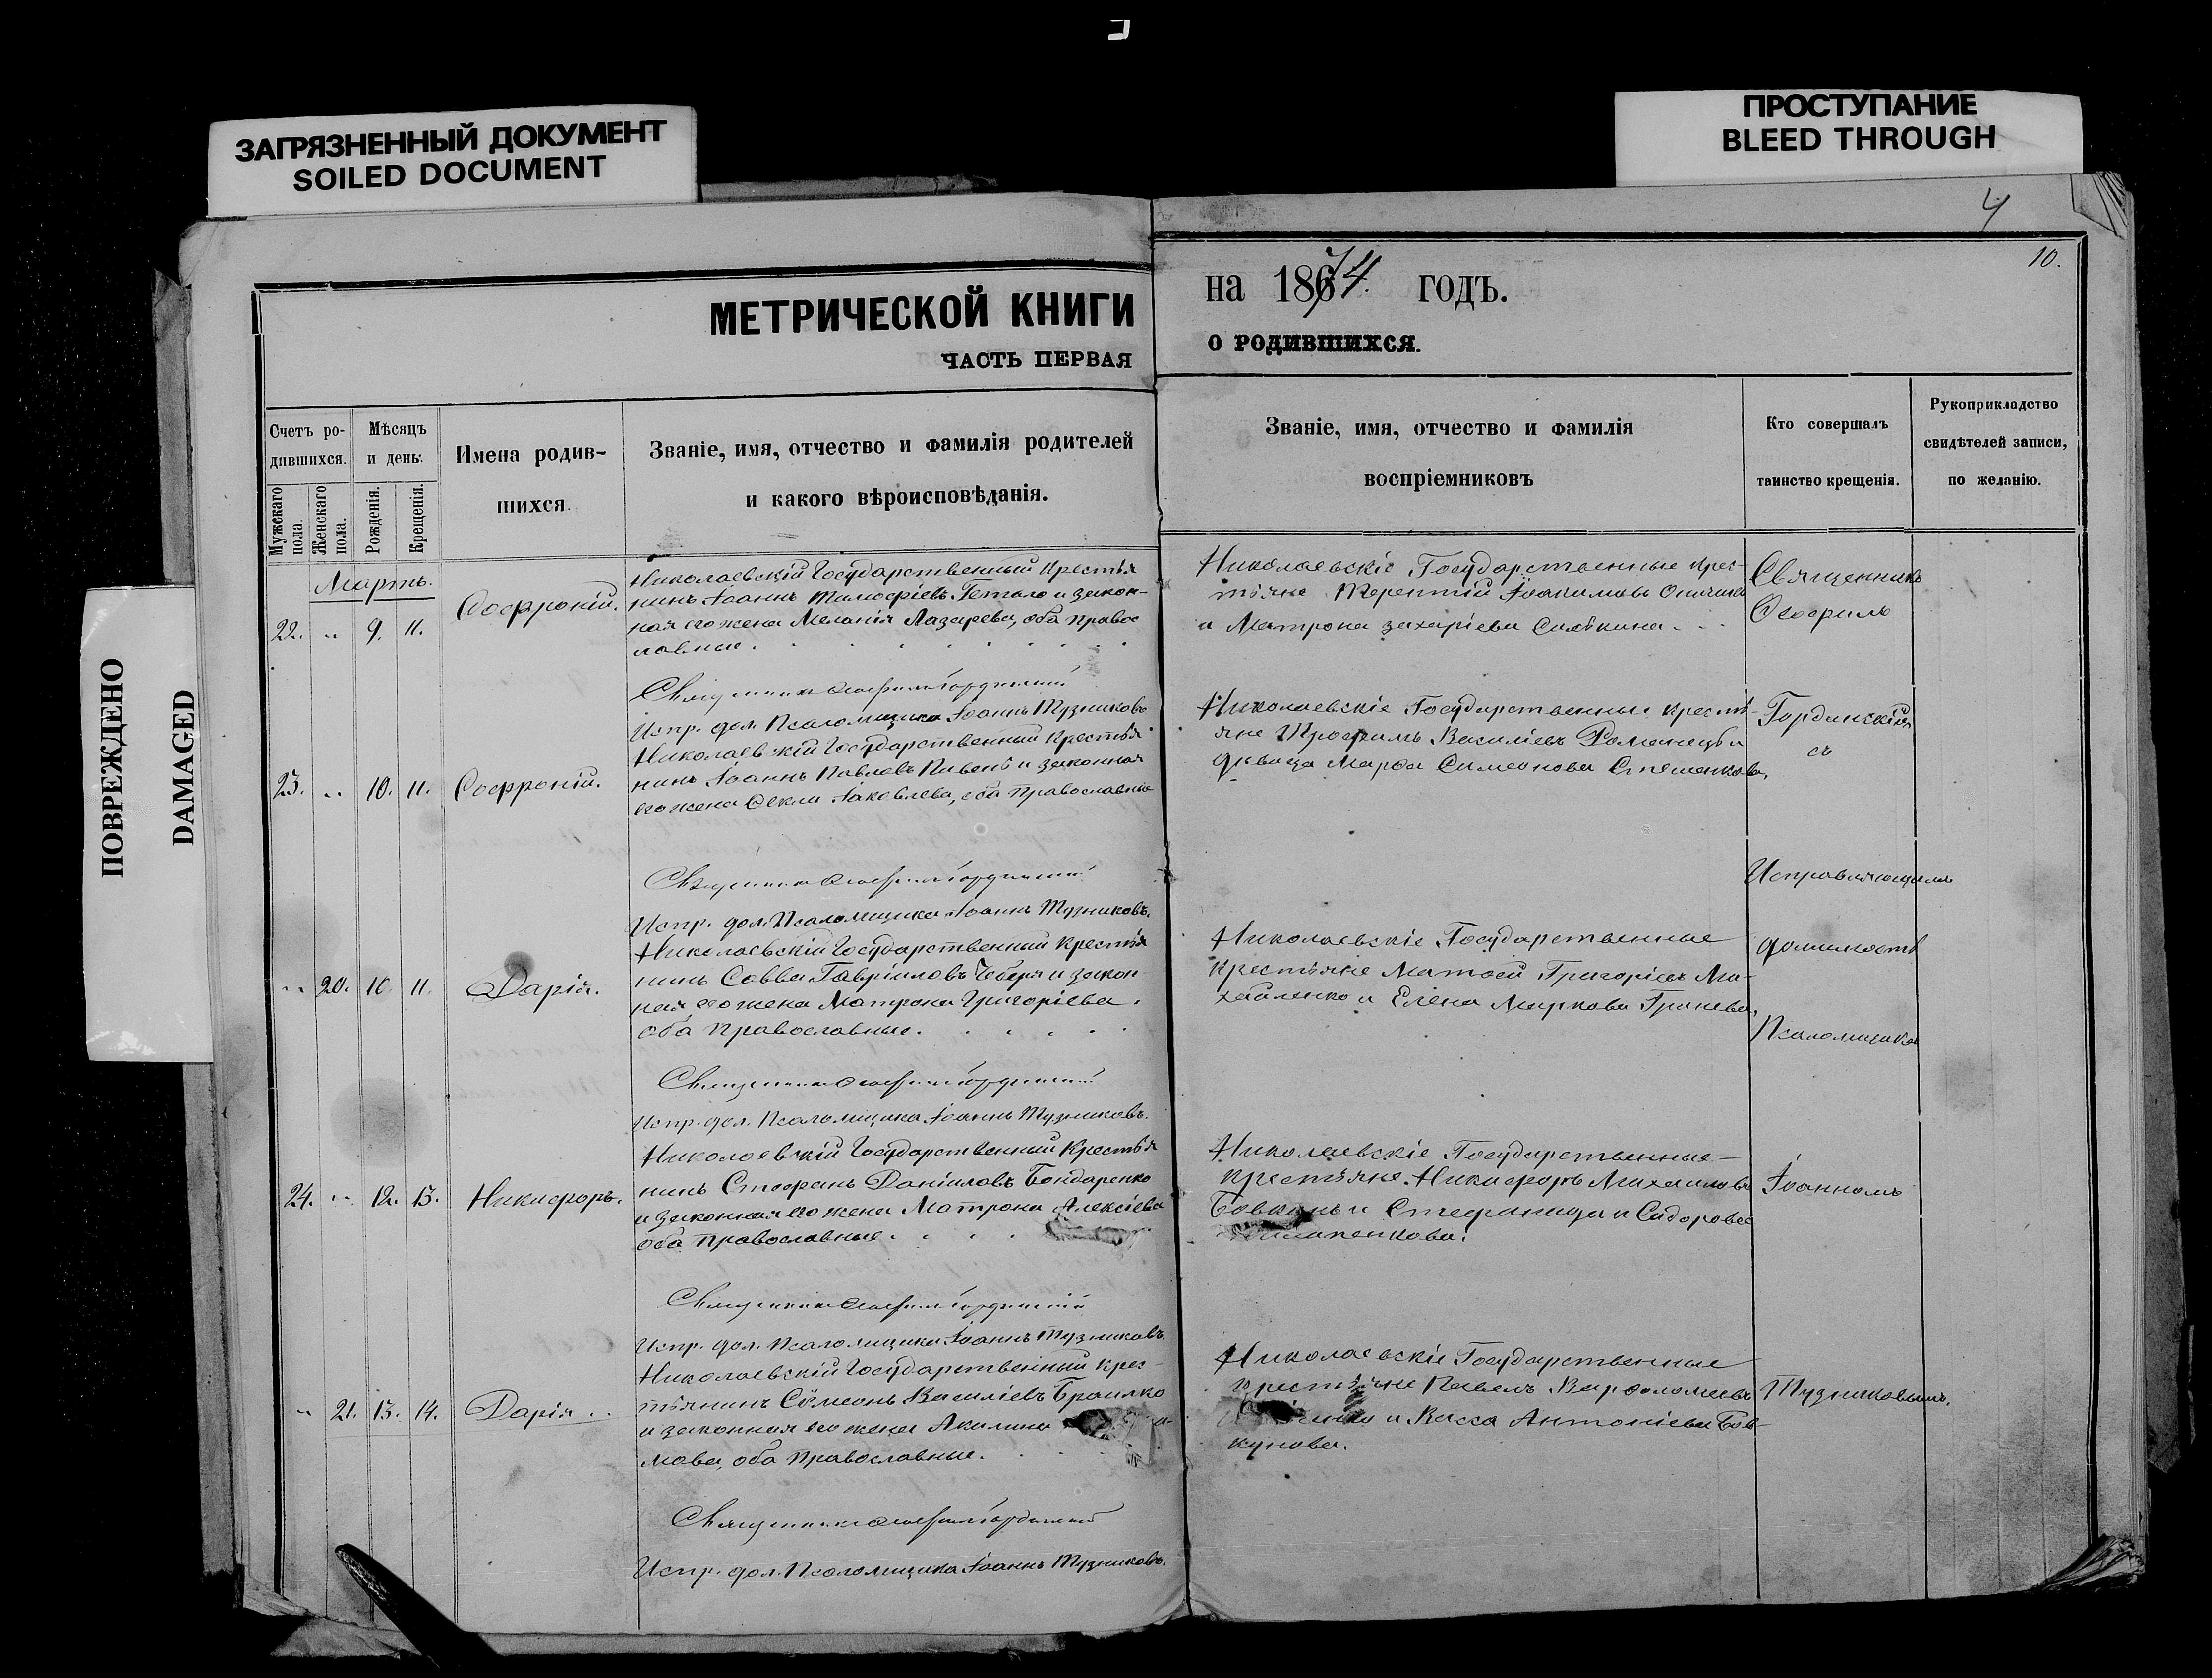 ЗАГРЯЗНЕННЫЙ ДОКУМЕНТ
SOILED DOCUMENT
ПРОСТУПАНИЕ
BLEED THROUGH
ПОВРЕЖДЕНО
DAMAGED
4
10.
МЕТРИЧЕСКОЙ КНИГИ
ЧАСТЬ ПЕРВАЯ
на 1874 годъ.
О РОДИВШИХСЯ.
Счетъ ро-
дившихся.
Мужскаго пола.
Женскаго пола.
Мѣсяцъ
и день.
Рожденія.
Крещенія.
Имена родив-
шихся.
Званіе, имя, отчество и фамилія родителей
и какого вѣроисповѣданія.
Званіе, имя, отчество и фамилія
воспріемниковъ
Кто совершалъ
таинство крещенія.
Рукоприкладство
свидѣтелей записи,
по желанію.
Мартъ.
22. " 9. 11.
Софроній.
Николаевскій Государственный Крестья
нинъ Іоаннъ Тимофіевъ Гетало и закон-
ная его жена Меланія Лазарева, оба правос
лавные.
Николаевскіе Государственные крес-
тьяне Терентій Іоакимовъ
и Матрона Захаріева
Священникъ
Ѳеофилъ
Священникъ Ѳеофилъ Гординскій
Испр. дол. Псаломщика Іоаннъ Тузниковъ
23. " 10. 11.
Софроній.
Николаевскій Государственный Крестья
нинъ Іоаннъ Павловъ Пивень и законная
его жена Ѳекла Іаковлева, оба православные
Николаевскіе Государственные кресть-
яне Трофимъ Василіевъ Романецъ и
дѣвица Марѳа Симеонова Стеменкова,
Гординскій
съ
Священникъ Ѳеофилъ Гординскій
Испр. дол. Псаломщика Іоаннъ Тузниковъ.
Исправляющимъ
" 20. 10. 11.
Дарія.
Николаевскій Государственный Крестья
нинъ Савва Гавріиловъ Чеберя и закон
ная его жена Матрона Григоріева.
оба Православные.
Николаевскіе Государственные
Крестьяне Матѳей Григоріевъ Ми-
хайленко и Елена Маркова Гринева,
должность
Псаломщика
Священникъ Ѳеофилъ Гординскій
Испр. дол. Псаломщика Іоаннъ Тузниковъ.
24. " 12. 13.
Никифоръ.
Николаевскій Государственный Крестья
нинъ Стефанъ Даніиловъ Бондаренко
и законная его жена Матрона Алексіева
оба православные.
Николаевскіе Государственные
крестьяне. Никифоръ Михаиловъ
Бовкунъ и Стефанида Сидорова
Іоанномъ
Священникъ Ѳеофилъ Гординскій
Испр. дол. Псаломщика Іоаннъ Тузниковъ.
" 21. 13. 14.
Дарія.
Николаевскій Государственный Крес-
тьянинъ Сѵмеонъ Василіевъ Браилко
и законная его жена Акилина
мова, оба православные.
Николаевскіе Государственные
крестьяне Павелъ Варѳоломеевъ
и Васса Антоніева Бов-
кунова.
Тузниковымъ.
Священникъ Ѳеофилъ Гординскій
Испр. дол. Псаломщика Іоаннъ Тузниковъ.